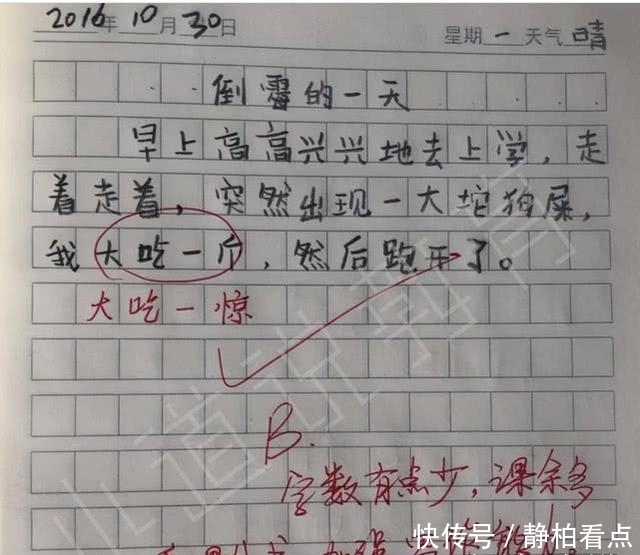 2016年10月30日 星期一 天气晴
倒霉的一天
早上高高兴兴地去上学，走
着走着，突然出现一大坨狗屎，
我大吃一斤，然后跑开了。
大吃一惊
B.
字数有点少，课余多
快传号／静柏看点